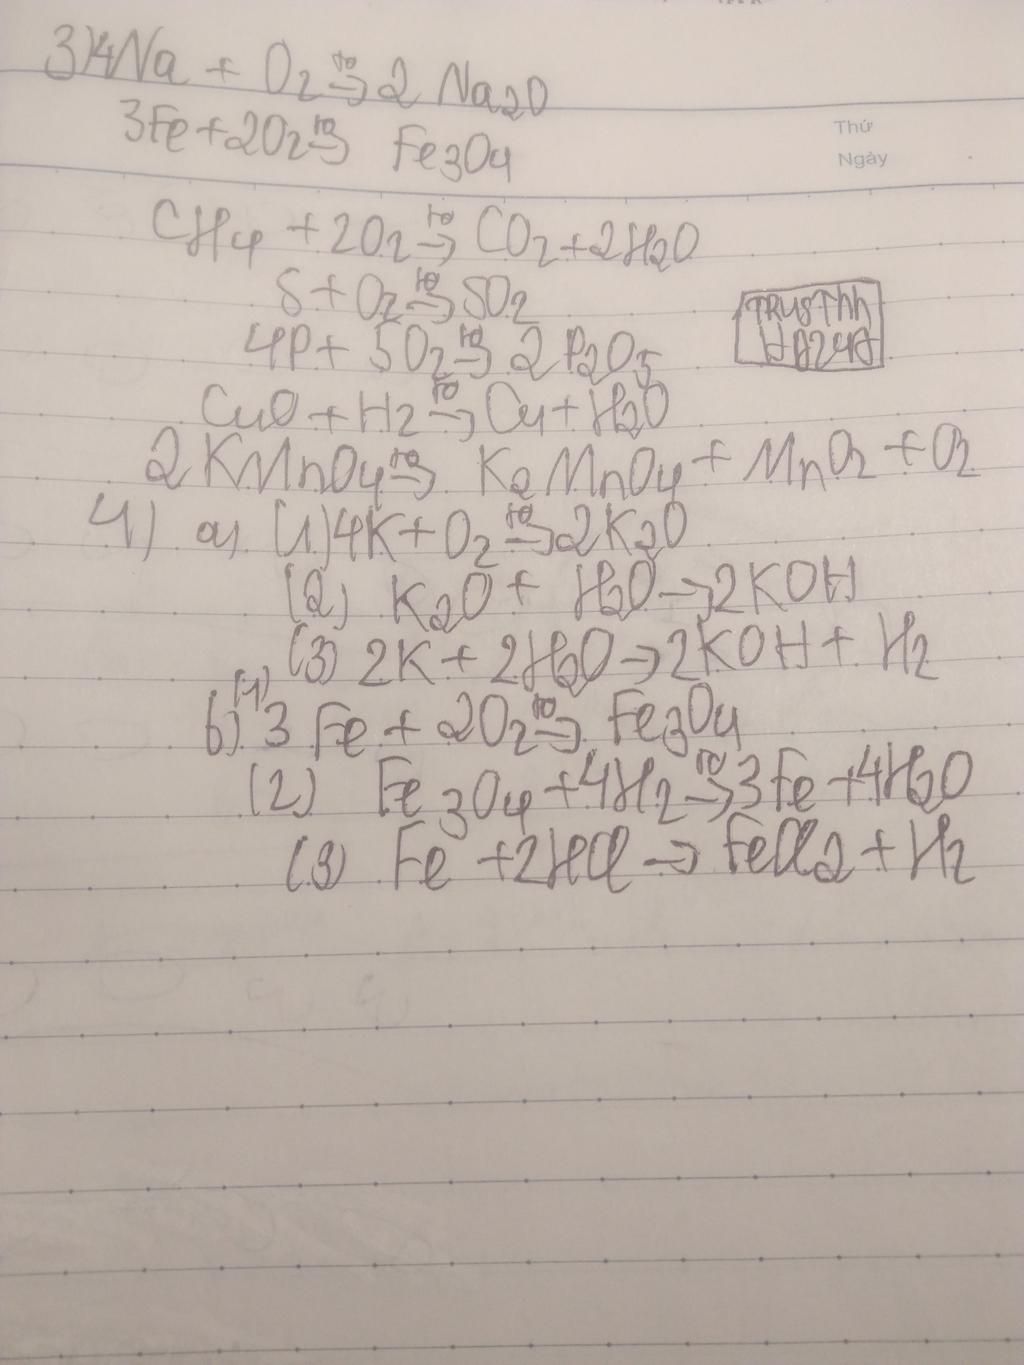 3) 4Na + O2 t°→ 2 Na2O
3Fe + 2O2 t°→ Fe3O4
Thứ
Ngày
CH4 + 2O2 t°→ CO2 + 2H2O
S + O2 t°→ SO2
4P + 5O2 t°→ 2 P2O5
TRUSThh
HD24A
CuO + H2 t°→ Cu + H2O
2 KMnO4 t°→ K2MnO4 + MnO2 + O2
4) a) (1) 4K + O2 t°→ 2K2O
(2) K2O + H2O → 2KOH
(3) 2K + 2H2O → 2KOH + H2
b) (1) 3 Fe + 2O2 t°→ Fe3O4
(2) Fe3O4 + 4H2 t°→ 3Fe + 4H2O
(3) Fe + 2HCl → FeCl2 + H2